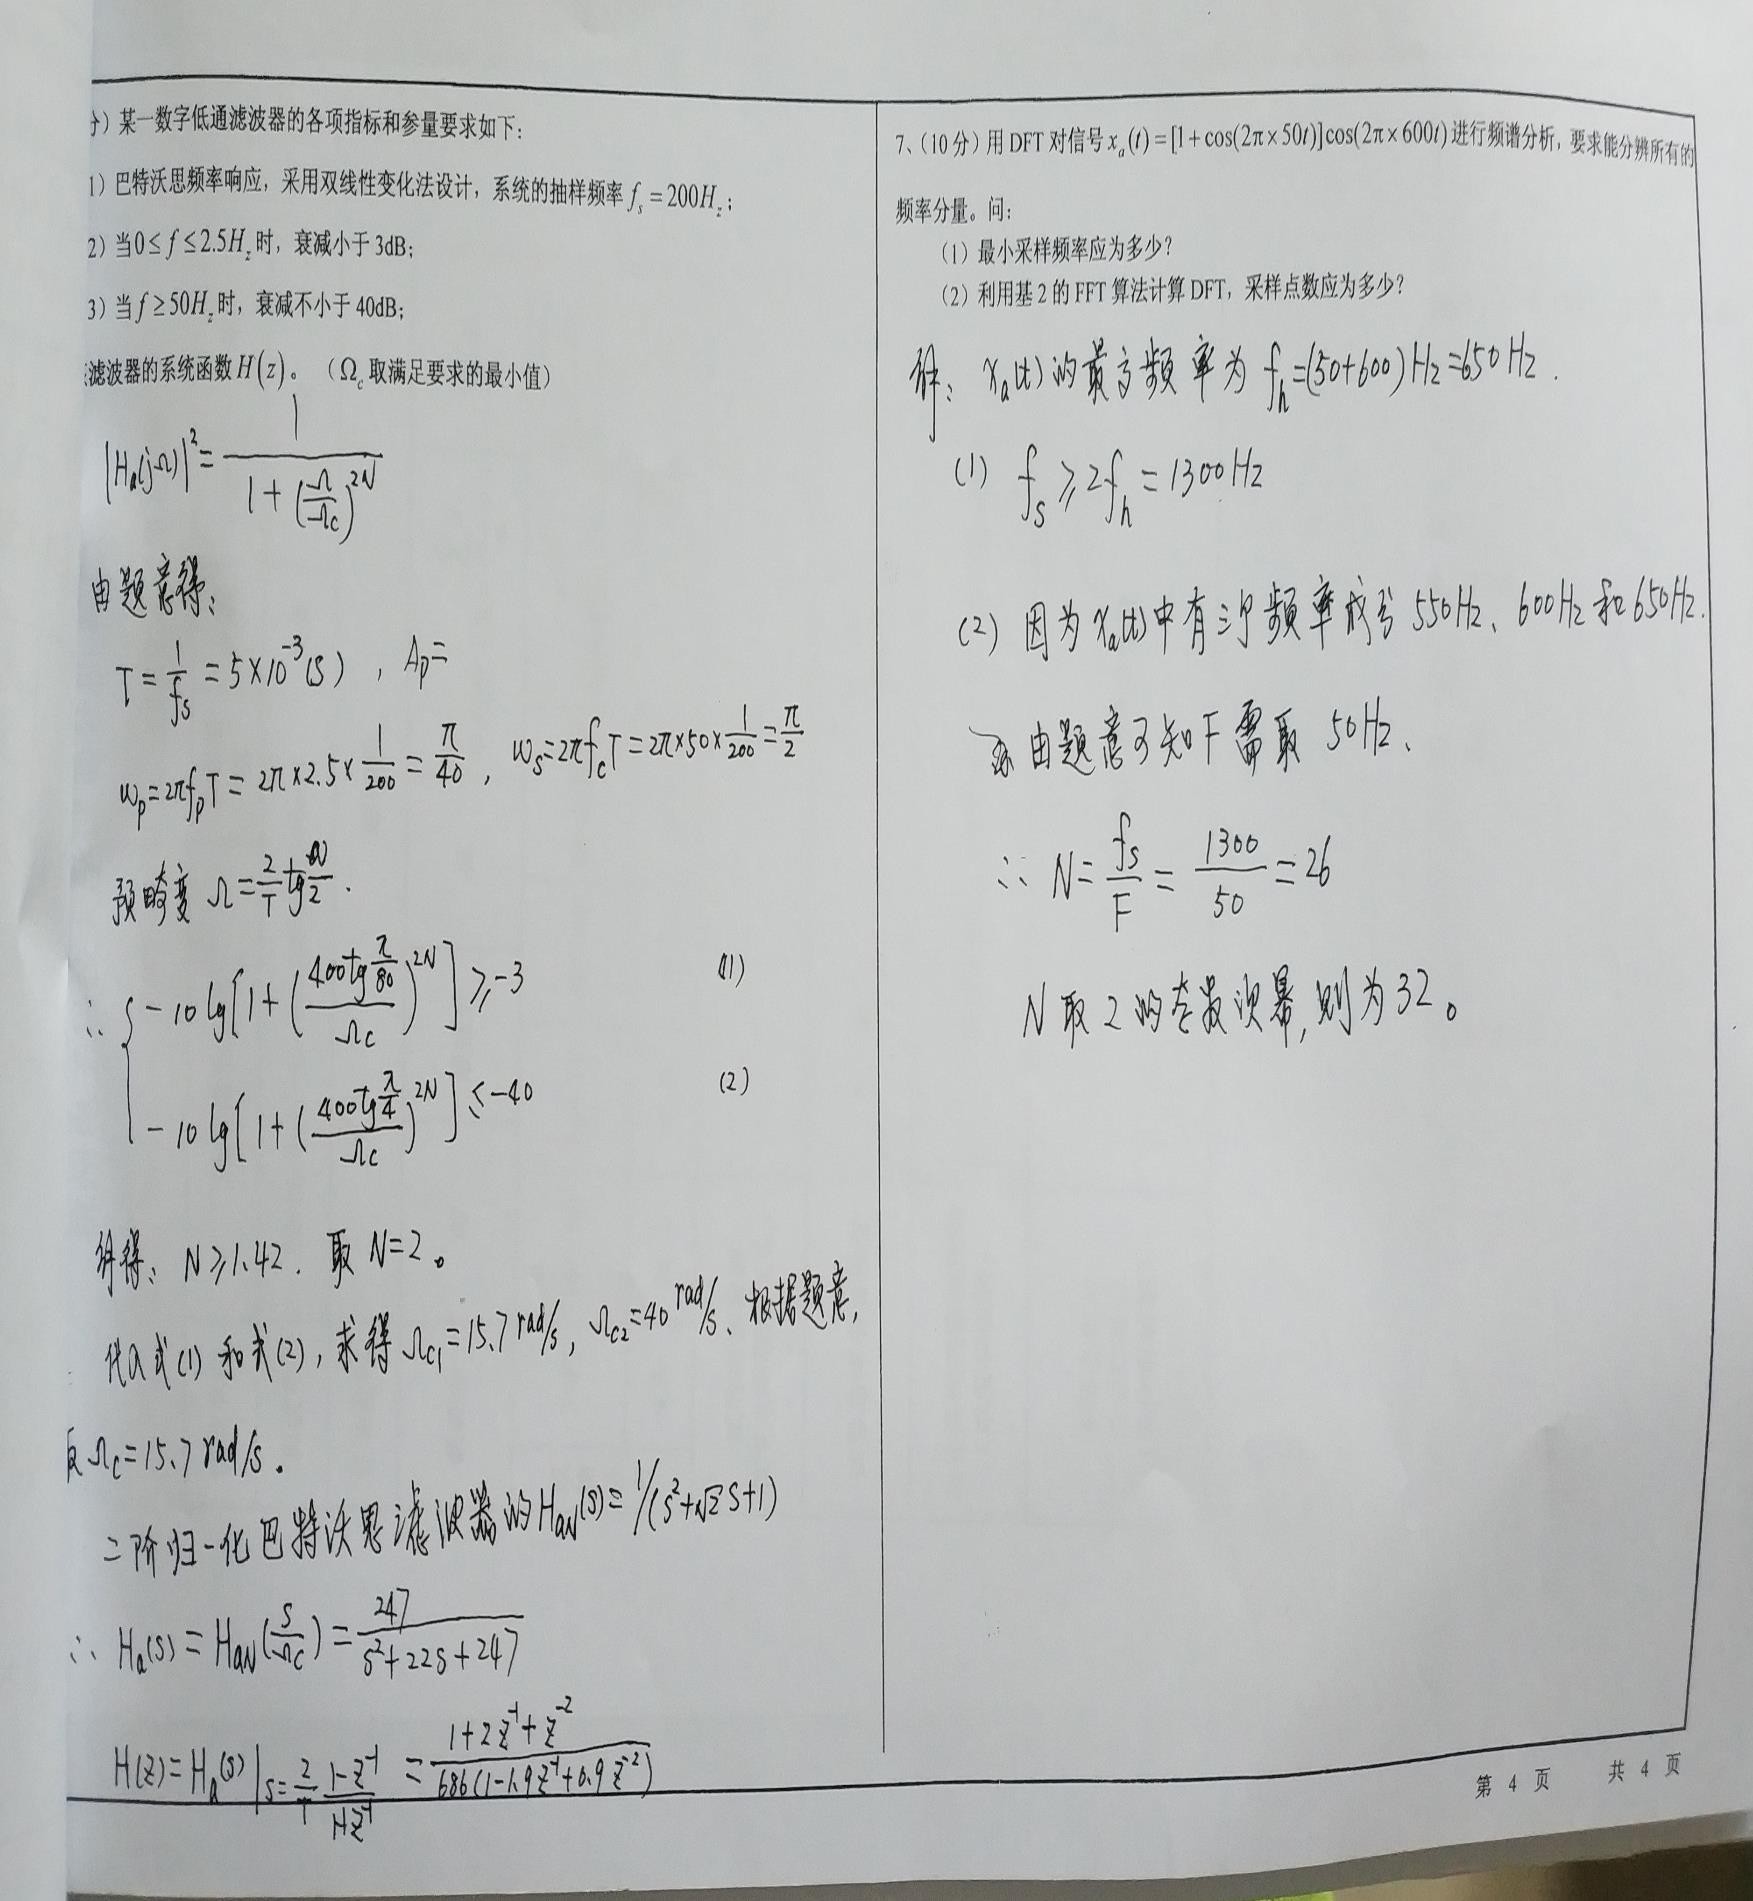 分）某一数字低通滤波器的各项指标和参量要求如下：
1）巴特沃思频率响应，采用双线性变化法设计，系统的抽样频率 f_s = 200H_z；
2）当0≤f≤2.5H_z时，衰减小于3dB；
3）当f≥50H_z时，衰减不小于40dB；
滤波器的系统函数H(z)。（Ω_c取满足要求的最小值）
|Ha(jΩ)|² = 1/(1+(Ω/Ωc)^2N)
由题意得：
T = 1/fs = 5×10^-3 (s) , Ap=
ωp=2πfpT = 2π×2.5×1/200 = π/40 , ωs=2πfcT=2π×50×1/200=π/2
预畸变 Ω=2/T tg ω/2 .
∴ { -10lg[1+(400tg π/80 / Ωc)^2N] ≥ -3 (1)
-10lg[1+(400tg π/4 / Ωc)^2N] ≤ -40 (2)
解得：N≥1.42. 取 N=2。
代入式(1)和式(2)，求得Ωc1=15.7rad/s，Ωc2=40rad/s、根据题意，
取Ωc=15.7rad/s。
二阶归一化巴特沃思滤波器的HaN(s)=1/(s²+√2s+1)
∴ Ha(s) = HaN(s/Ωc) = 247/(s²+22s+247)
H(z)=Ha(s)|s=2/T (1-z^-1)/(1+z^-1) = (1+2z^-1+z^-2)/(686(1-1.9z^-1+0.9z^-2))
7、（10分）用DFT对信号x_a(t)=[1+cos(2π×50t)]cos(2π×600t)进行频谱分析，要求能分辨所有的
频率分量。问：
（1）最小采样频率应为多少？
（2）利用基2的FFT算法计算DFT，采样点数应为多少？
解：xa(t)的最高频率为 fh=(50+600)Hz=650Hz .
(1) fs ≥ 2fh = 1300Hz
(2) 因为xa(t)中有三个频率成分 550Hz、600Hz和650Hz.
由题意可知F需取 50Hz、
∴ N= fs/F = 1300/50 = 26
N取2的整数次幂，则为32。
第 4 页 共 4 页